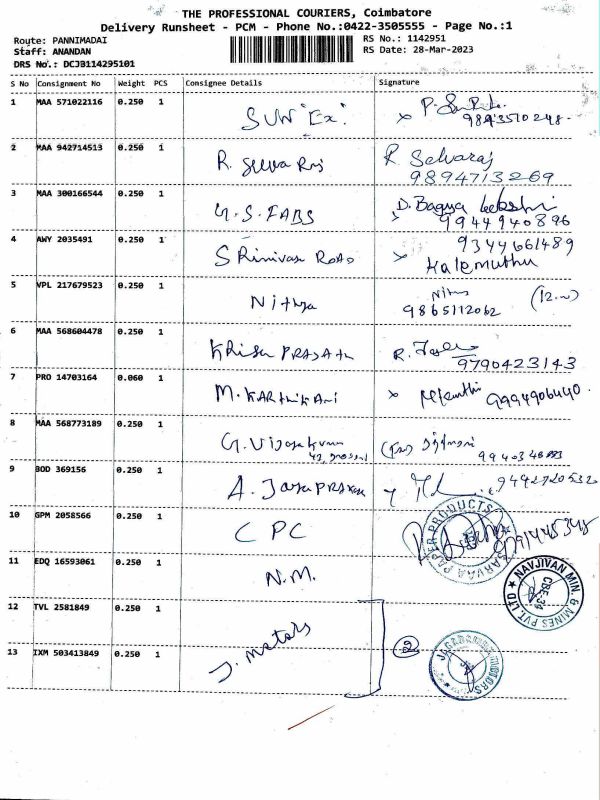 THE PROFESSIONAL COURIERS, Coimbatore
Delivery Runsheet - PCM - Phone No.:0422-3505555 - Page No.:1
Route: PANNIMADAI
RS No.: 1142951
Staff: ANANDAN
RS Date: 28-Mar-2023
DRS No.: DCJB114295101
S No Consignment No Weight PCS Consignee Details Signature
1 MAA 571022116 0.250 1 SUN "Ex"
2 MAA 942714513 0.250 1 R. Selvaraj
9894713269
3 MAA 300166544 0.250 1 G.S. FABS D. Bagya Lekshmi
9944940896
4 AWY 2035491 0.250 1 SRinivasa Road 9344661489
Kalemuthu
5 VPL 217679523 0.250 1 Nithya
9865112062
6 MAA 568604478 0.250 1 KRISH PRASATH R.
9790423143
7 PRO 14703164 0.060 1 M. KARTHIKANI
8 MAA 568773189 0.250 1 G. Vijayakumar
9 BOD 369156 0.250 1 A. Jaya PRAKASH 9442720532
10 GPM 2058566 0.250 1 CPC 9791445348
SARVAA PAPER PRODUCTS
11 EDQ 16593061 0.250 1 N.M.
NAVJIVAN MIN. & MINES PVT. LTD
CBE-34
12 TVL 2581849 0.250 1 J. Motors
13 IXM 503413849 0.250 1
2
MOTORS